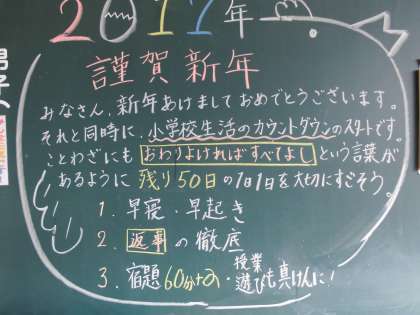 2017年
謹賀新年
みなさん、新年あけましておめでとうございます。
それと同時に、小学校生活のカウントダウンのスタートです。
ことわざにもおわりよければすべてよしという言葉が
あるように残り50日の1日1日を大切にすごそう。
1. 早寝・早起き
2. 返事の徹底
3. 宿題60分+α・授業 遊びも真けんに!
男子、